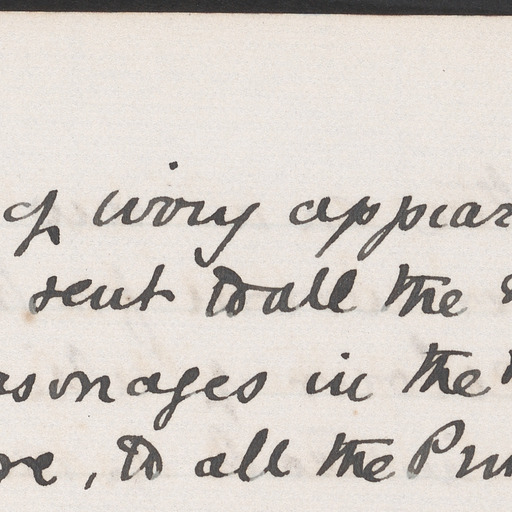 of ivory appear
sent to all the
rsonages in the
re, to all the Prin